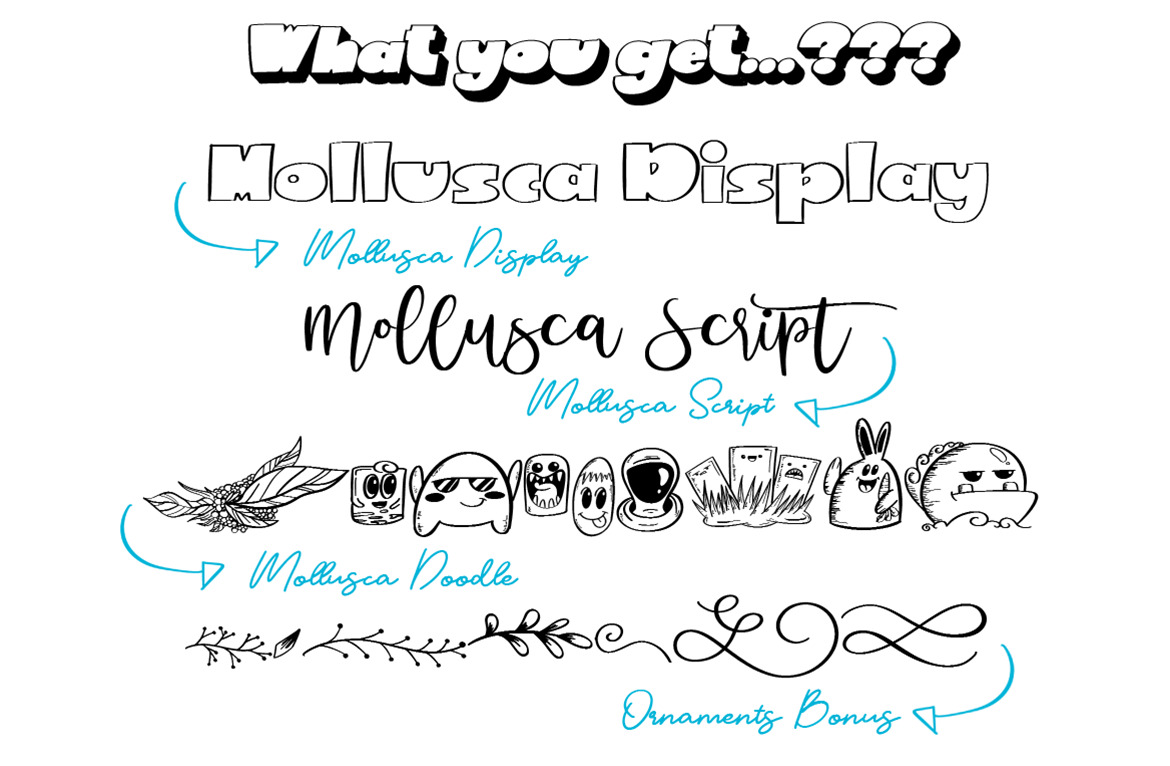 What you get...???
Mollusca Display
Mollusca Display
Mollusca Script
Mollusca Script
Mollusca Doodle
Ornaments Bonus